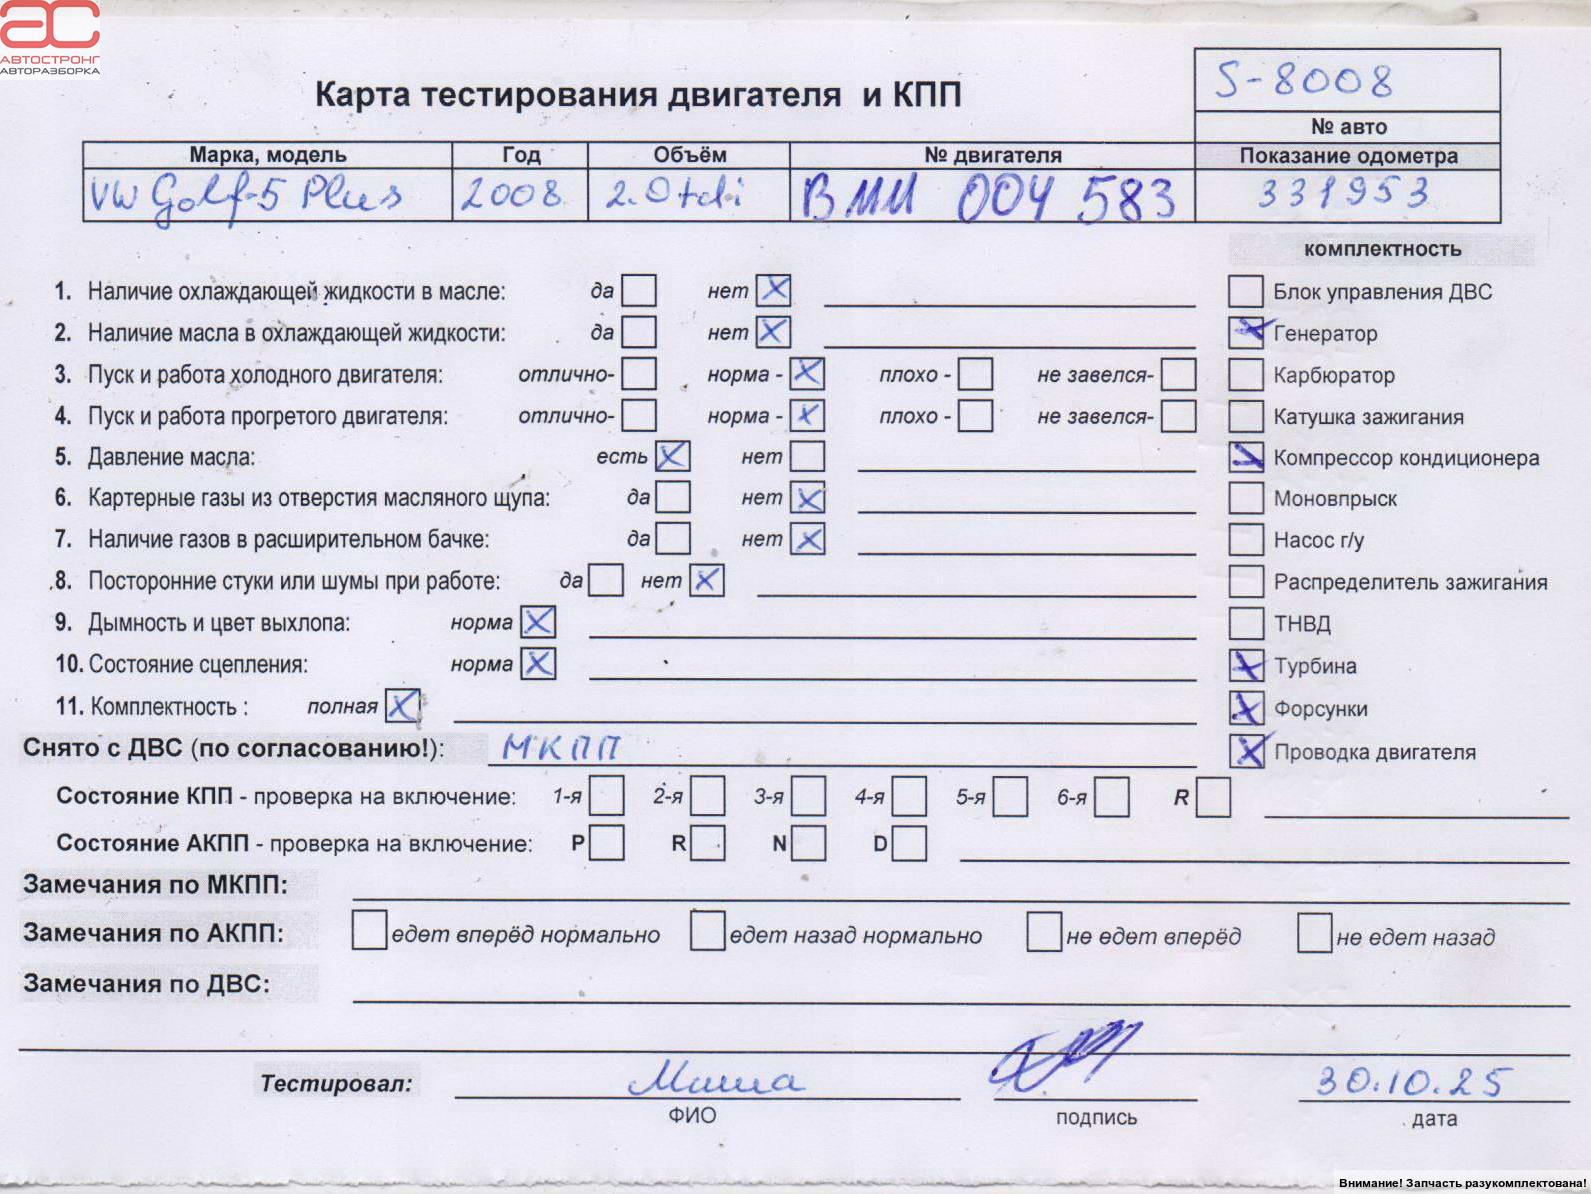 АС
АВТОСТРОНГ
АВТОРАЗБОРКА
S-8008
Карта тестирования двигателя и КПП
№ авто
Марка, модель Год Объём № двигателя Показание одометра
VW Golf-5 Plus 2008 2.0tdi ВММ 004 583 331953
комплектность
1. Наличие охлаждающей жидкости в масле: да нет Блок управления ДВС
2. Наличие масла в охлаждающей жидкости: да нет Генератор
3. Пуск и работа холодного двигателя: отлично- норма - плохо - не завелся- Карбюратор
4. Пуск и работа прогретого двигателя: отлично- норма - плохо - не завелся- Катушка зажигания
5. Давление масла: есть нет Компрессор кондиционера
6. Картерные газы из отверстия масляного щупа: да нет Моновпрыск
7. Наличие газов в расширительном бачке: да нет Насос г/у
8. Посторонние стуки или шумы при работе: да нет Распределитель зажигания
9. Дымность и цвет выхлопа: норма ТНВД
10. Состояние сцепления: норма Турбина
11. Комплектность : полная Форсунки
Снято с ДВС (по согласованию!): МКПП Проводка двигателя
Состояние КПП - проверка на включение: 1-я 2-я 3-я 4-я 5-я 6-я R
Состояние АКПП - проверка на включение: P R N D
Замечания по МКПП:
Замечания по АКПП: едет вперёд нормально едет назад нормально не едет вперёд не едет назад
Замечания по ДВС:
Тестировал: Миша 30.10.25
ФИО подпись дата
Внимание! Запчасть разукомплектована!